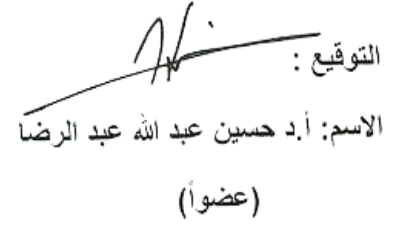 التوقيع :
الاسم: أ.د حسين عبد الله عبد الرضا
(عضواً)